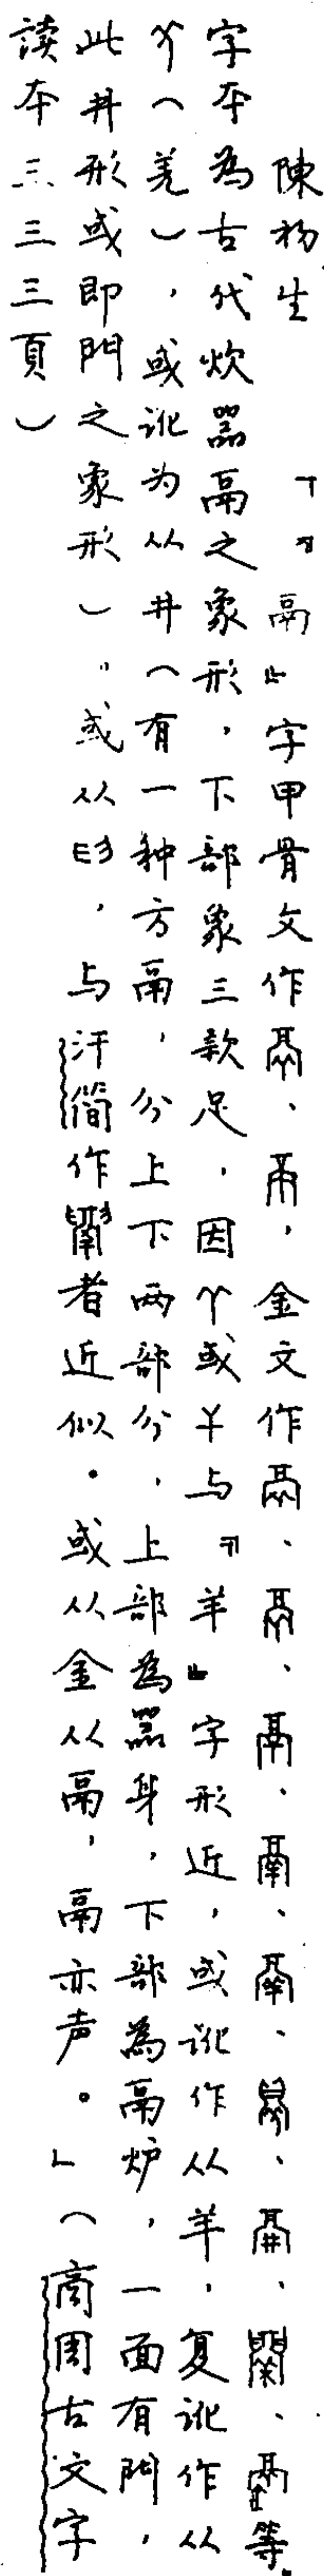 陳初生 「『鬲』字甲骨文作、，金文作、、、、、、、、等。
字本為古代炊器鬲之象形，下部象三款足，因或与『羊』字形近，或訛作从羊，复訛作从
（羌），或訛为从井（有一种方鬲，分上下两部分，上部為器身，下部為鬲炉，一面有門，
此井形或即門之象形）。或从，与汗簡作者近似。或从金从鬲，鬲亦声。」（商周古文字
讀本三三三頁）